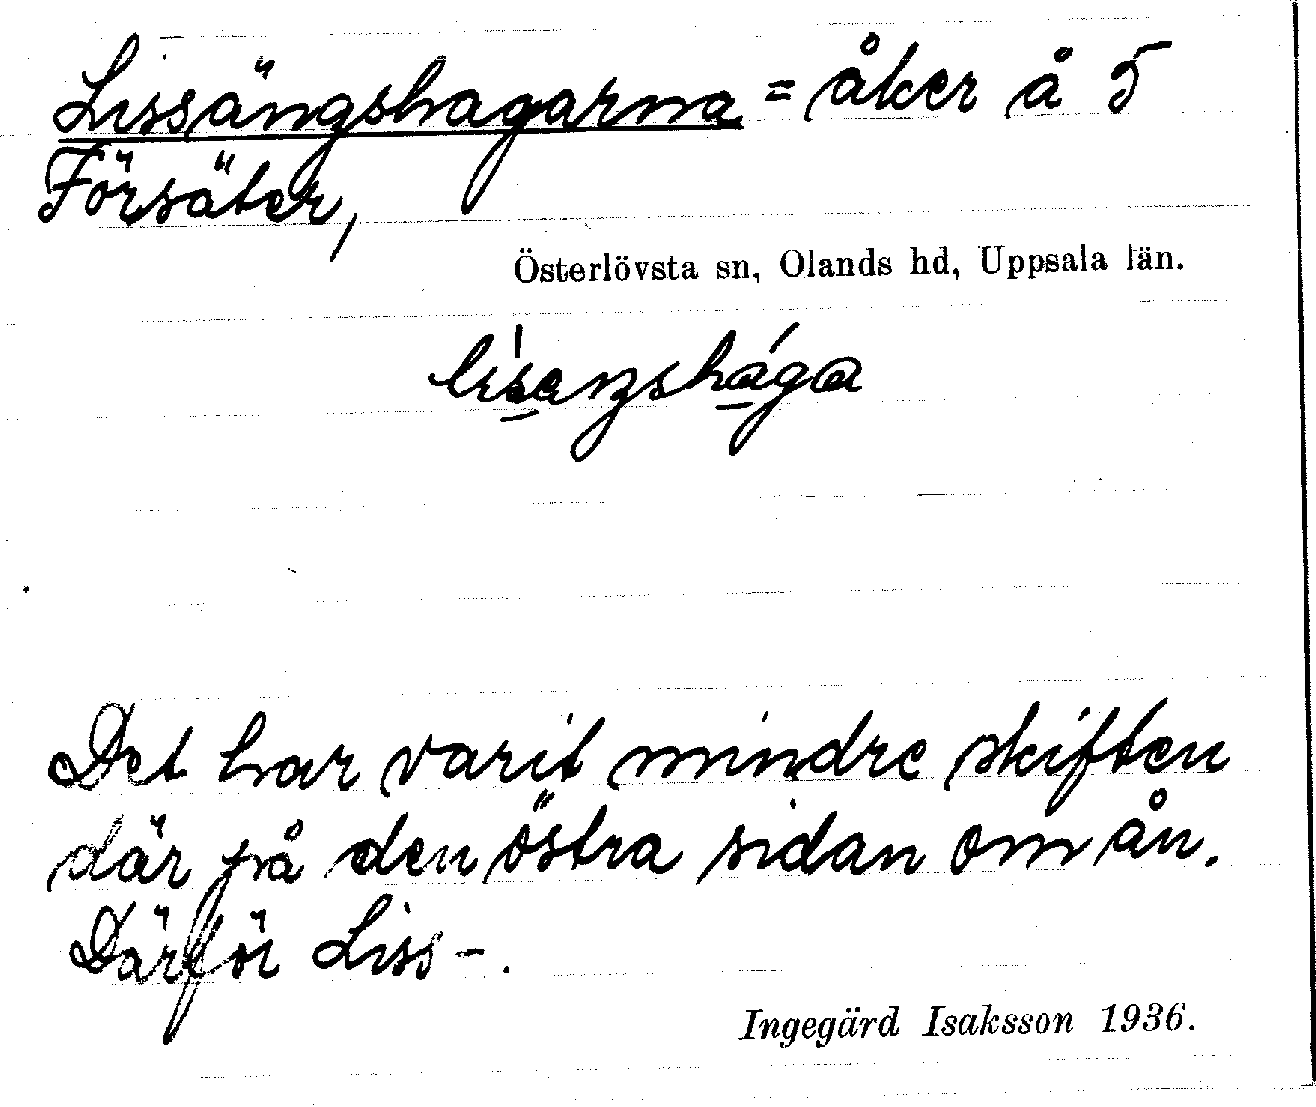 Lissängshagarna = åker å 5
Försäter,
Österlövsta sn, Olands hd, Uppsala län.
Det har varit mindre skiften
där på den östra sidan om ån.
Därför Liss-.
Ingegärd Isaksson 1936.